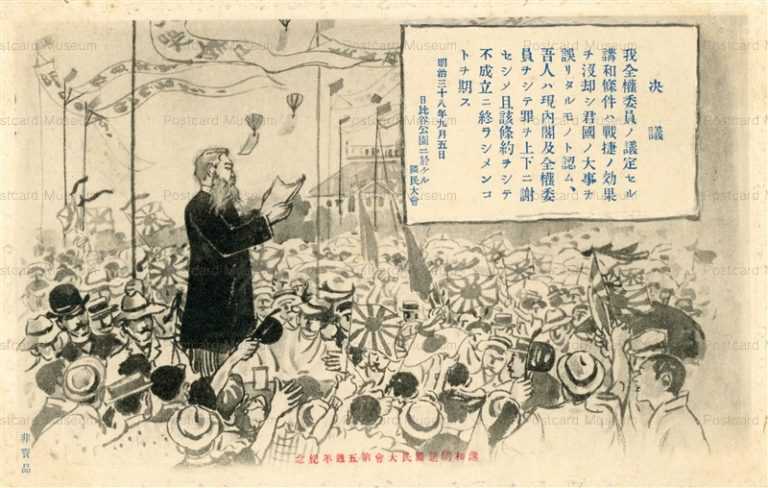 決議
我全權委員ノ議定セル
講和條件ハ戰捷ノ効果
ヲ沒却シ君國ノ大事ヲ
誤リタルモノト認ム、
吾人ハ現內閣及全權委
員ヲシテ罪ヲ上下ニ謝
セシメ且該條約ヲシテ
不成立ニ終ヲシメンコ
トヲ期ス
明治三十八年九月五日
日比谷公園ニ於ケル
國民大會
非賣品
大會第五週年紀念
Postcard Museum